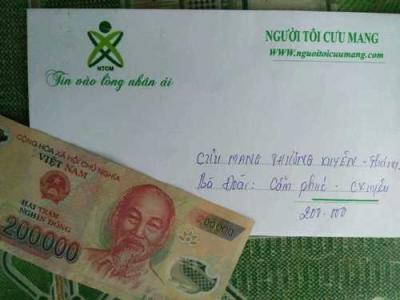 NTCM
Tin vào lòng nhân ái
NGƯỜI TÔI CƯU MANG
www.nguoitoicuumang.com
CƯU MANG THƯỜNG XUYÊN - tháng
Bà Đoái: Cẩm phúc - Cxuyên
200.000
CỘNG HÒA XÃ HỘI CHỦ NGHĨA
VIỆT NAM
HAI TRĂM
NGHÌN ĐỒNG
200000
200000